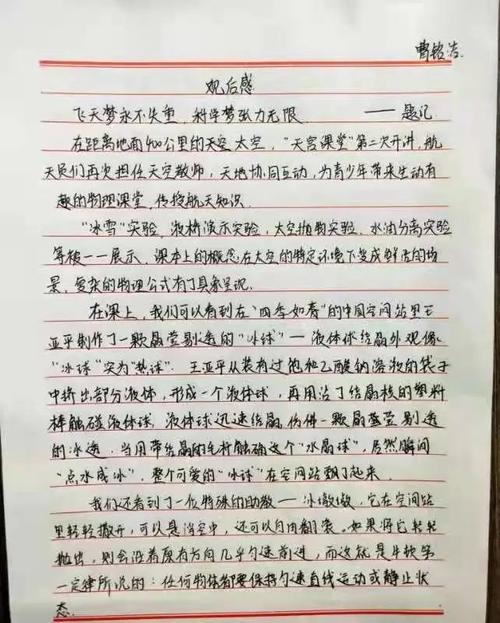 曹铭浩.
观后感
飞天梦永不失重，科学梦张力无限 —— 题记
在距离地面400公里的天空 太空，"天宫课堂"第二次开讲，航
天员们再次担任天空教师，天地协同互动，为青少年带来生动有
趣的物理课堂，传授航天知识.
"冰雪"实验、液桥演示实验、太空抛物实验、水油分离实验
等被一一展示、课本上的概念在太空的特定环境下变成鲜活的场
景，复杂的物理公式有了具象呈现.
在课上，我们可以看到在"四季如春"的中国空间站里王
亚平制作了一颗晶莹剔透的"冰球"—液体球结晶外观像
"冰球"实为"热球". 王亚平从装有过饱和乙酸钠溶液的袋子
中挤出部分液体，形成一个液体球，再用沾了结晶核的塑料
棒触碰液体球，液体球迅速结晶，仿佛一颗晶莹剔透
的冰透.当用带结晶的毛杆触碰这个"水晶球"，居然瞬间
"点水成冰"，整个可爱的"冰球"在空间站飘了起来.
我们还看到了一位特殊的助教—冰墩墩，它在空间站
里轻轻撒开，可以悬浮空中，还可以自由翻滚。如果将它轻轻
抛出，则会沿着原有方向几乎匀速前进，而这就是牛顿第
一定律所说的：任何物体都要保持匀速直线运动或静止状
态.